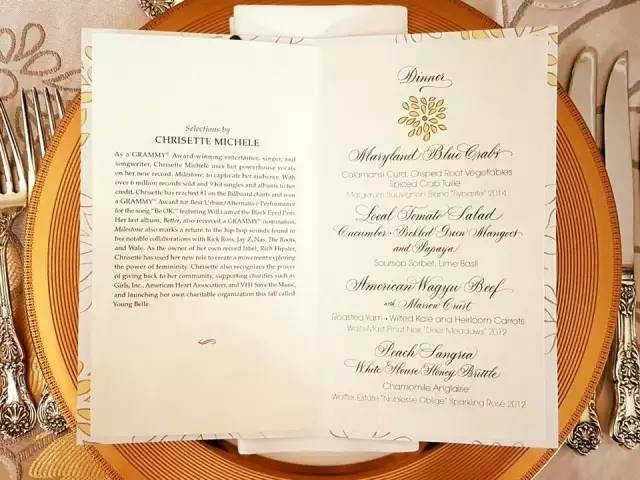 Selections by
CHRISETTE MICHELE
As a GRAMMY® Award-winning entertainer, singer, and
songwriter, Chrisette Michele uses her powerhouse vocals
on her new record, Milestone, to captivate her audience. With
over 6 million records sold and 9 hit singles and albums to her
credit, Chrisette has reached #1 on the Billboard charts and won
a GRAMMY® Award for Best Urban/Alternative Performance
for the song "Be OK," featuring Will I.am of the Black Eyed Peas.
Her last album, Better, also received a GRAMMY® nomination.
Milestone also marks a return to the hip-hop sounds found in
her notable collaborations with Rick Ross, Jay Z, Nas, The Roots,
and Wale. As the owner of her own record label, Rich Hipster,
Chrisette has used her new role to create a movement exploring
the power of femininity. Chrisette also recognizes the power
of giving back to her community, supporting charities such as
Girls, Inc., American Heart Association, and VH1 Save the Music,
and launching her own charitable organization this fall called
Young Belle.
Dinner
Maryland Blue Crabs
Calamansi Curd Crisped Root Vegetables
Spiced Crab Tuille
Margerum Sauvignon Blanc "Sybarite" 2014
Local Tomato Salad
Cucumber • Pickled Green Mangoes
and Papaya
Soursop Sorbet, Lime Basil
American Wagyu Beef
with Marrow Crust
Roasted Yam • Wilted Kale and Heirloom Carrots
WalzMast Pinot Noir "Deer Meadows" 2012
Peach Sangria
White House Honey Brittle
Chamomile Anglaise
Wölffer Estate "Noblesse Oblige" Sparkling Rosé 2012